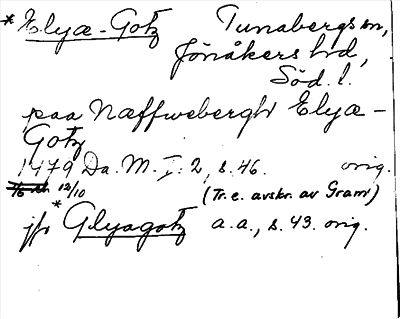 *Elyæ-Gotz Tunabergs sn,
Jönåkers hd,
Söd. l.
paa Næffwebergh Elyæ-
Gotz
1479 Da. M. I: 2, s. 46. orig.
12/10 (Tr. e. avskr. av Gram)
jfr *Glyagotz a.a., s. 43. orig.